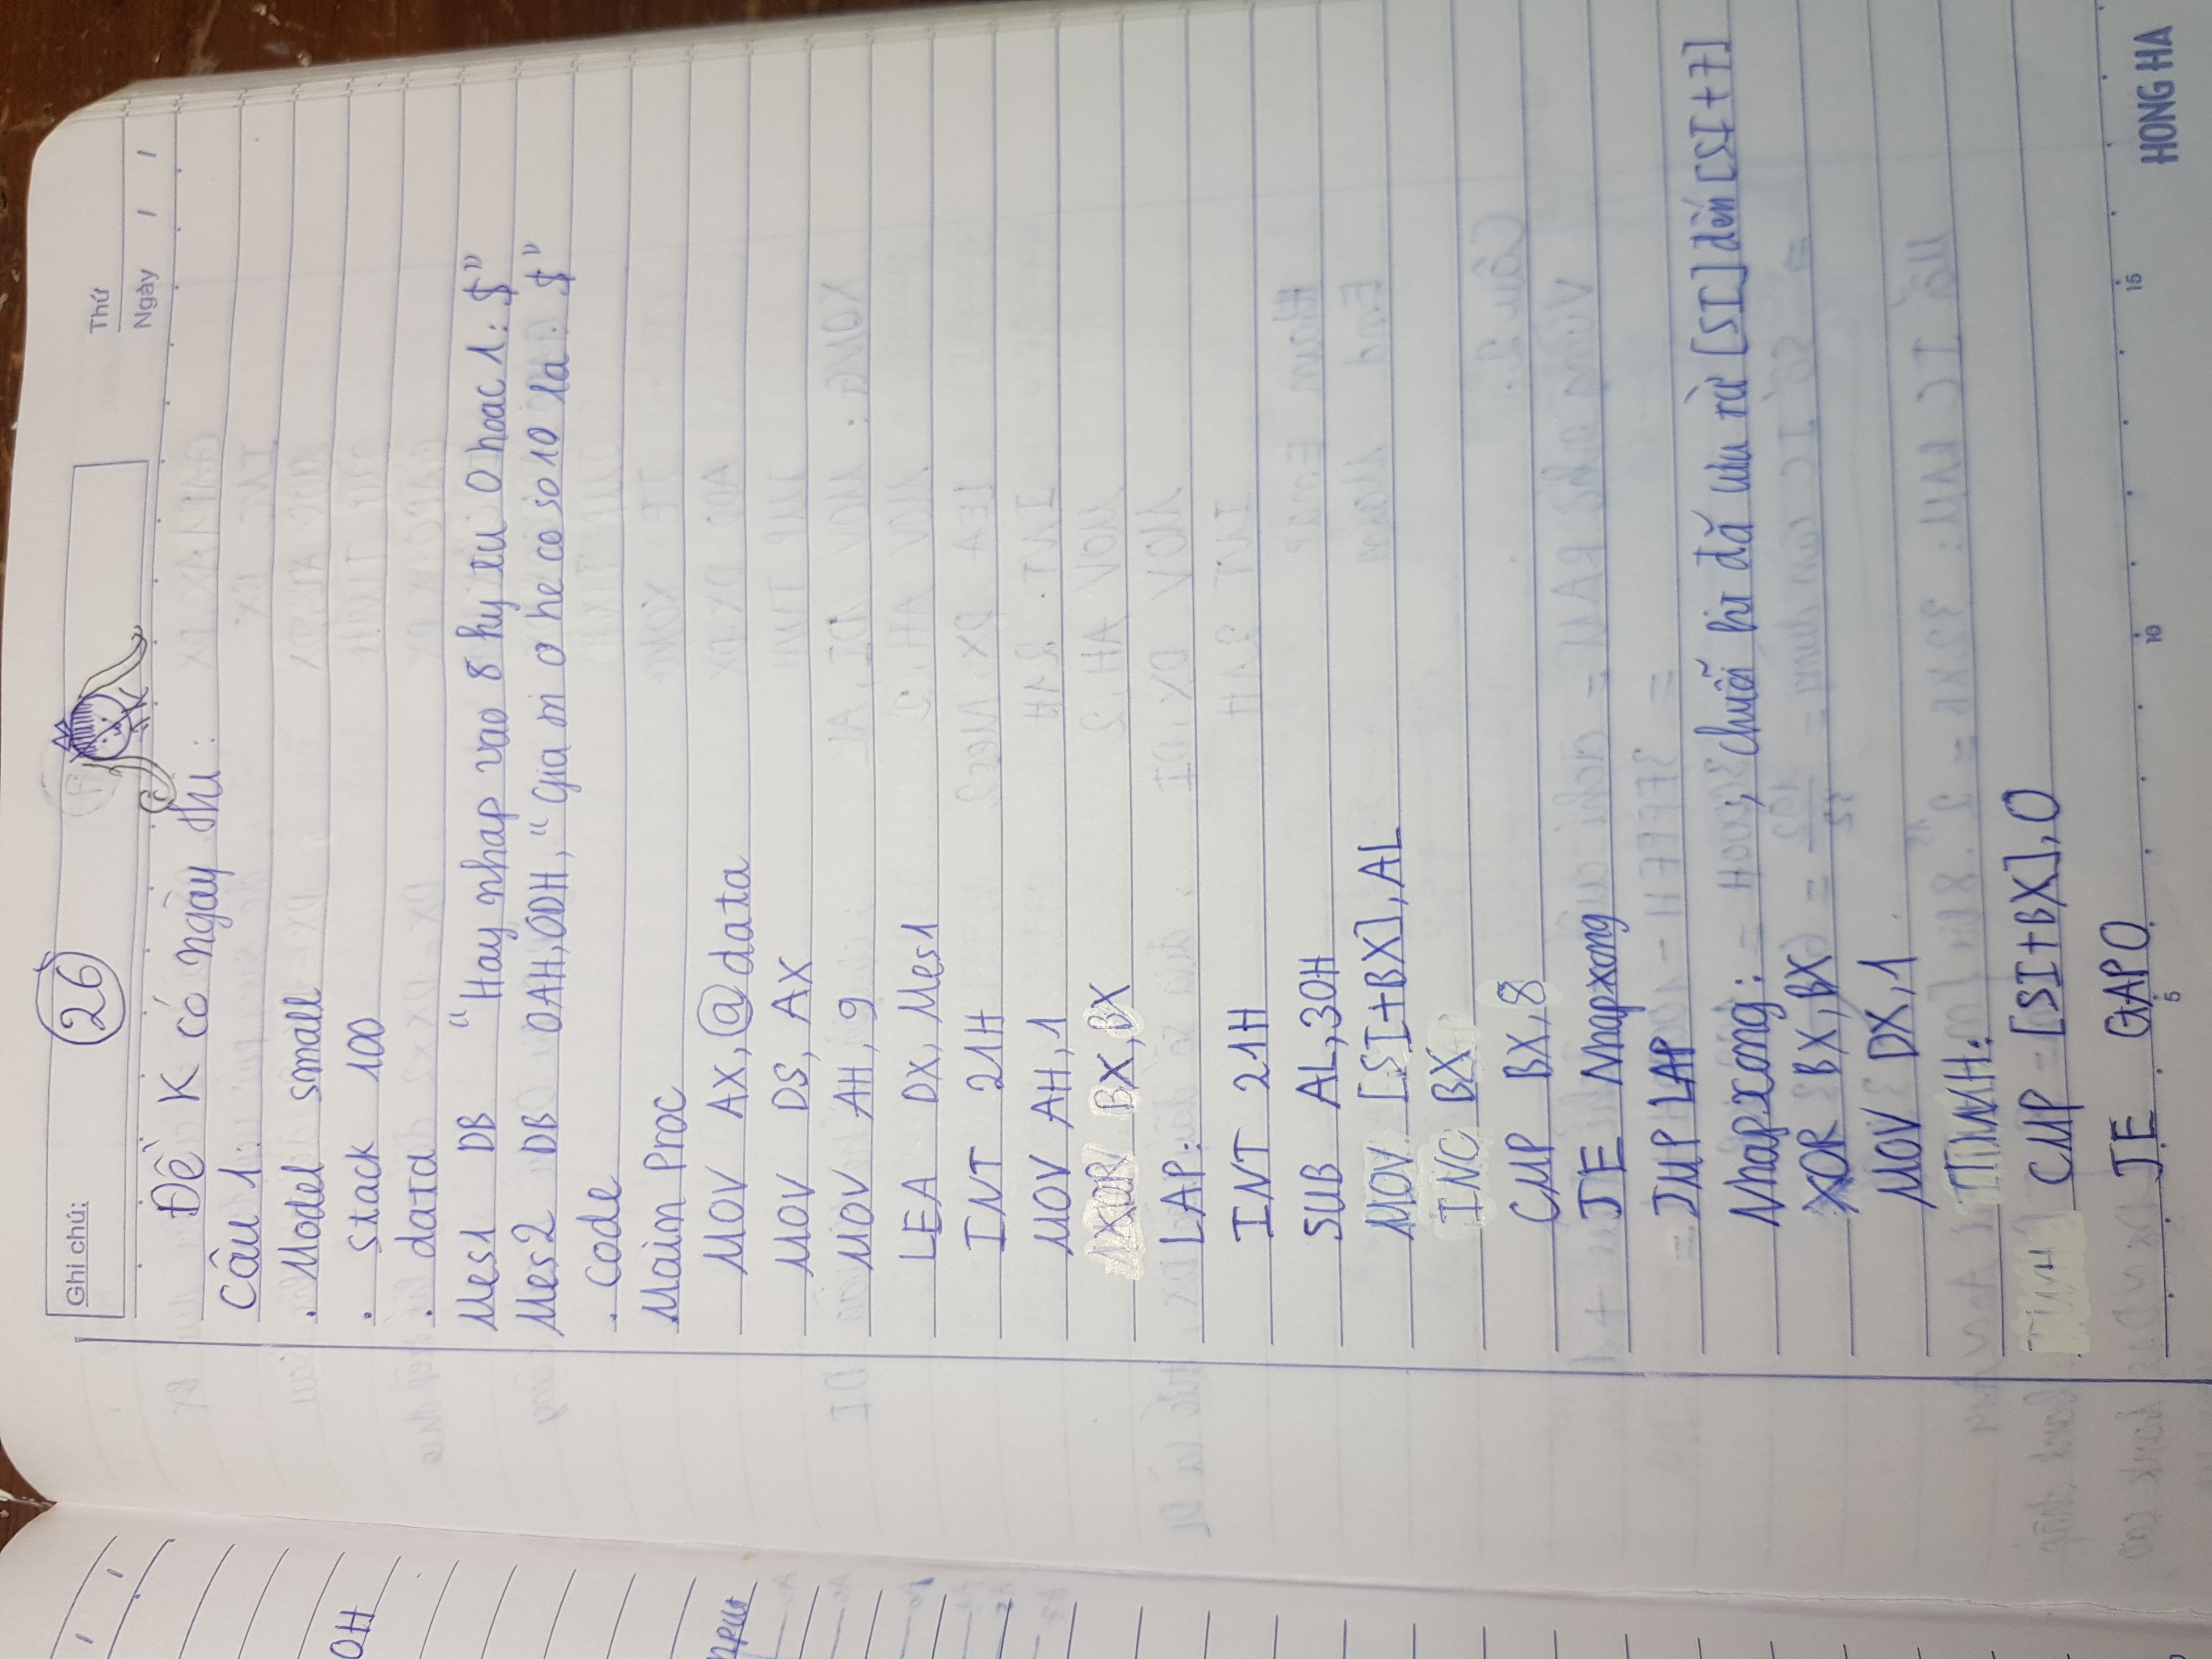 Ghi chú:
26
Thứ
Ngày / /
Đề K có ngày thi:
Câu 1:
. Model small
. stack 100
. data
Mes1 DB "Hay nhap vao 8 ky tu 0 hoac 1: $"
Mes2 DB 0AH, 0DH, "Gia tri o he co so 10 la: $"
. Code
Main Proc
MOV AX, @data
MOV DS, AX
MOV AH, 9
LEA DX, Mes1
INT 21H
MOV AH, 1
XOR BX, BX
LAP:
INT 21H
SUB AL, 30H
MOV [SI+BX], AL
INC BX
CMP BX, 8
JE Nhapxong
JMP LAP
Nhapxong: ; chuỗi bit đã lưu từ [SI] đến [SI+7]
XOR BX, BX
MOV DX, 1
TINH:
CMP [SI+BX], 0
JE GAP0
5 10 15
HONG HA
OH
nput